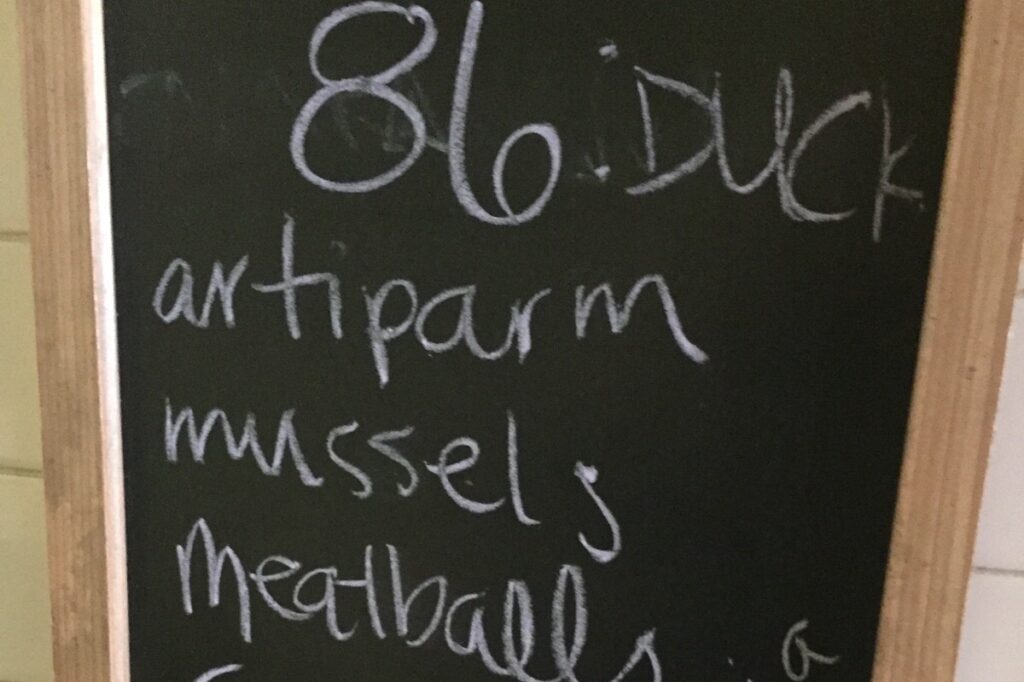 86: DUCK
artiparm
mussels
meatballs